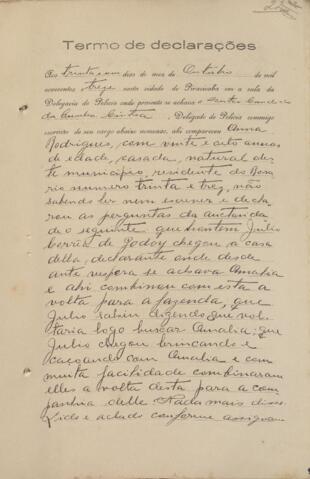 Termo de declarações
Aos trinta e um dias do mez de Outubro de mil
novecentos e treze nesta cidade de Piracicaba em a sala da
Delegacia de Policia onde presente se achava o Doutor Candido
da Cunha Cintra, Delegado de Policia commigo
escrivão de seu cargo abaixo nomeado, ahi compareceu Anna
Rodrigues, com vinte e oito annos
de edade, casada, natural des-
te municipio, residente do Rosa-
rio numero trinta e trez, não
sabendo ler nem escrever e decla-
rou as perguntas da auctorida-
de o seguinte que hontem Julio
Corrêa de Godoy chegou a casa
della, declarante onde desde
ante vespera se achava Amalia
e ahi combinou com esta a
volta para a fazenda, que
Julio sahiu dizendo que vol-
taria logo buscar Amalia; que
Julio chegou brincando e
caçoando com Amalia e com
muita facilidade combinaram
elles a volta desta para a com-
panhia delle. Nada mais disse.
Lido e achado conforme assignam